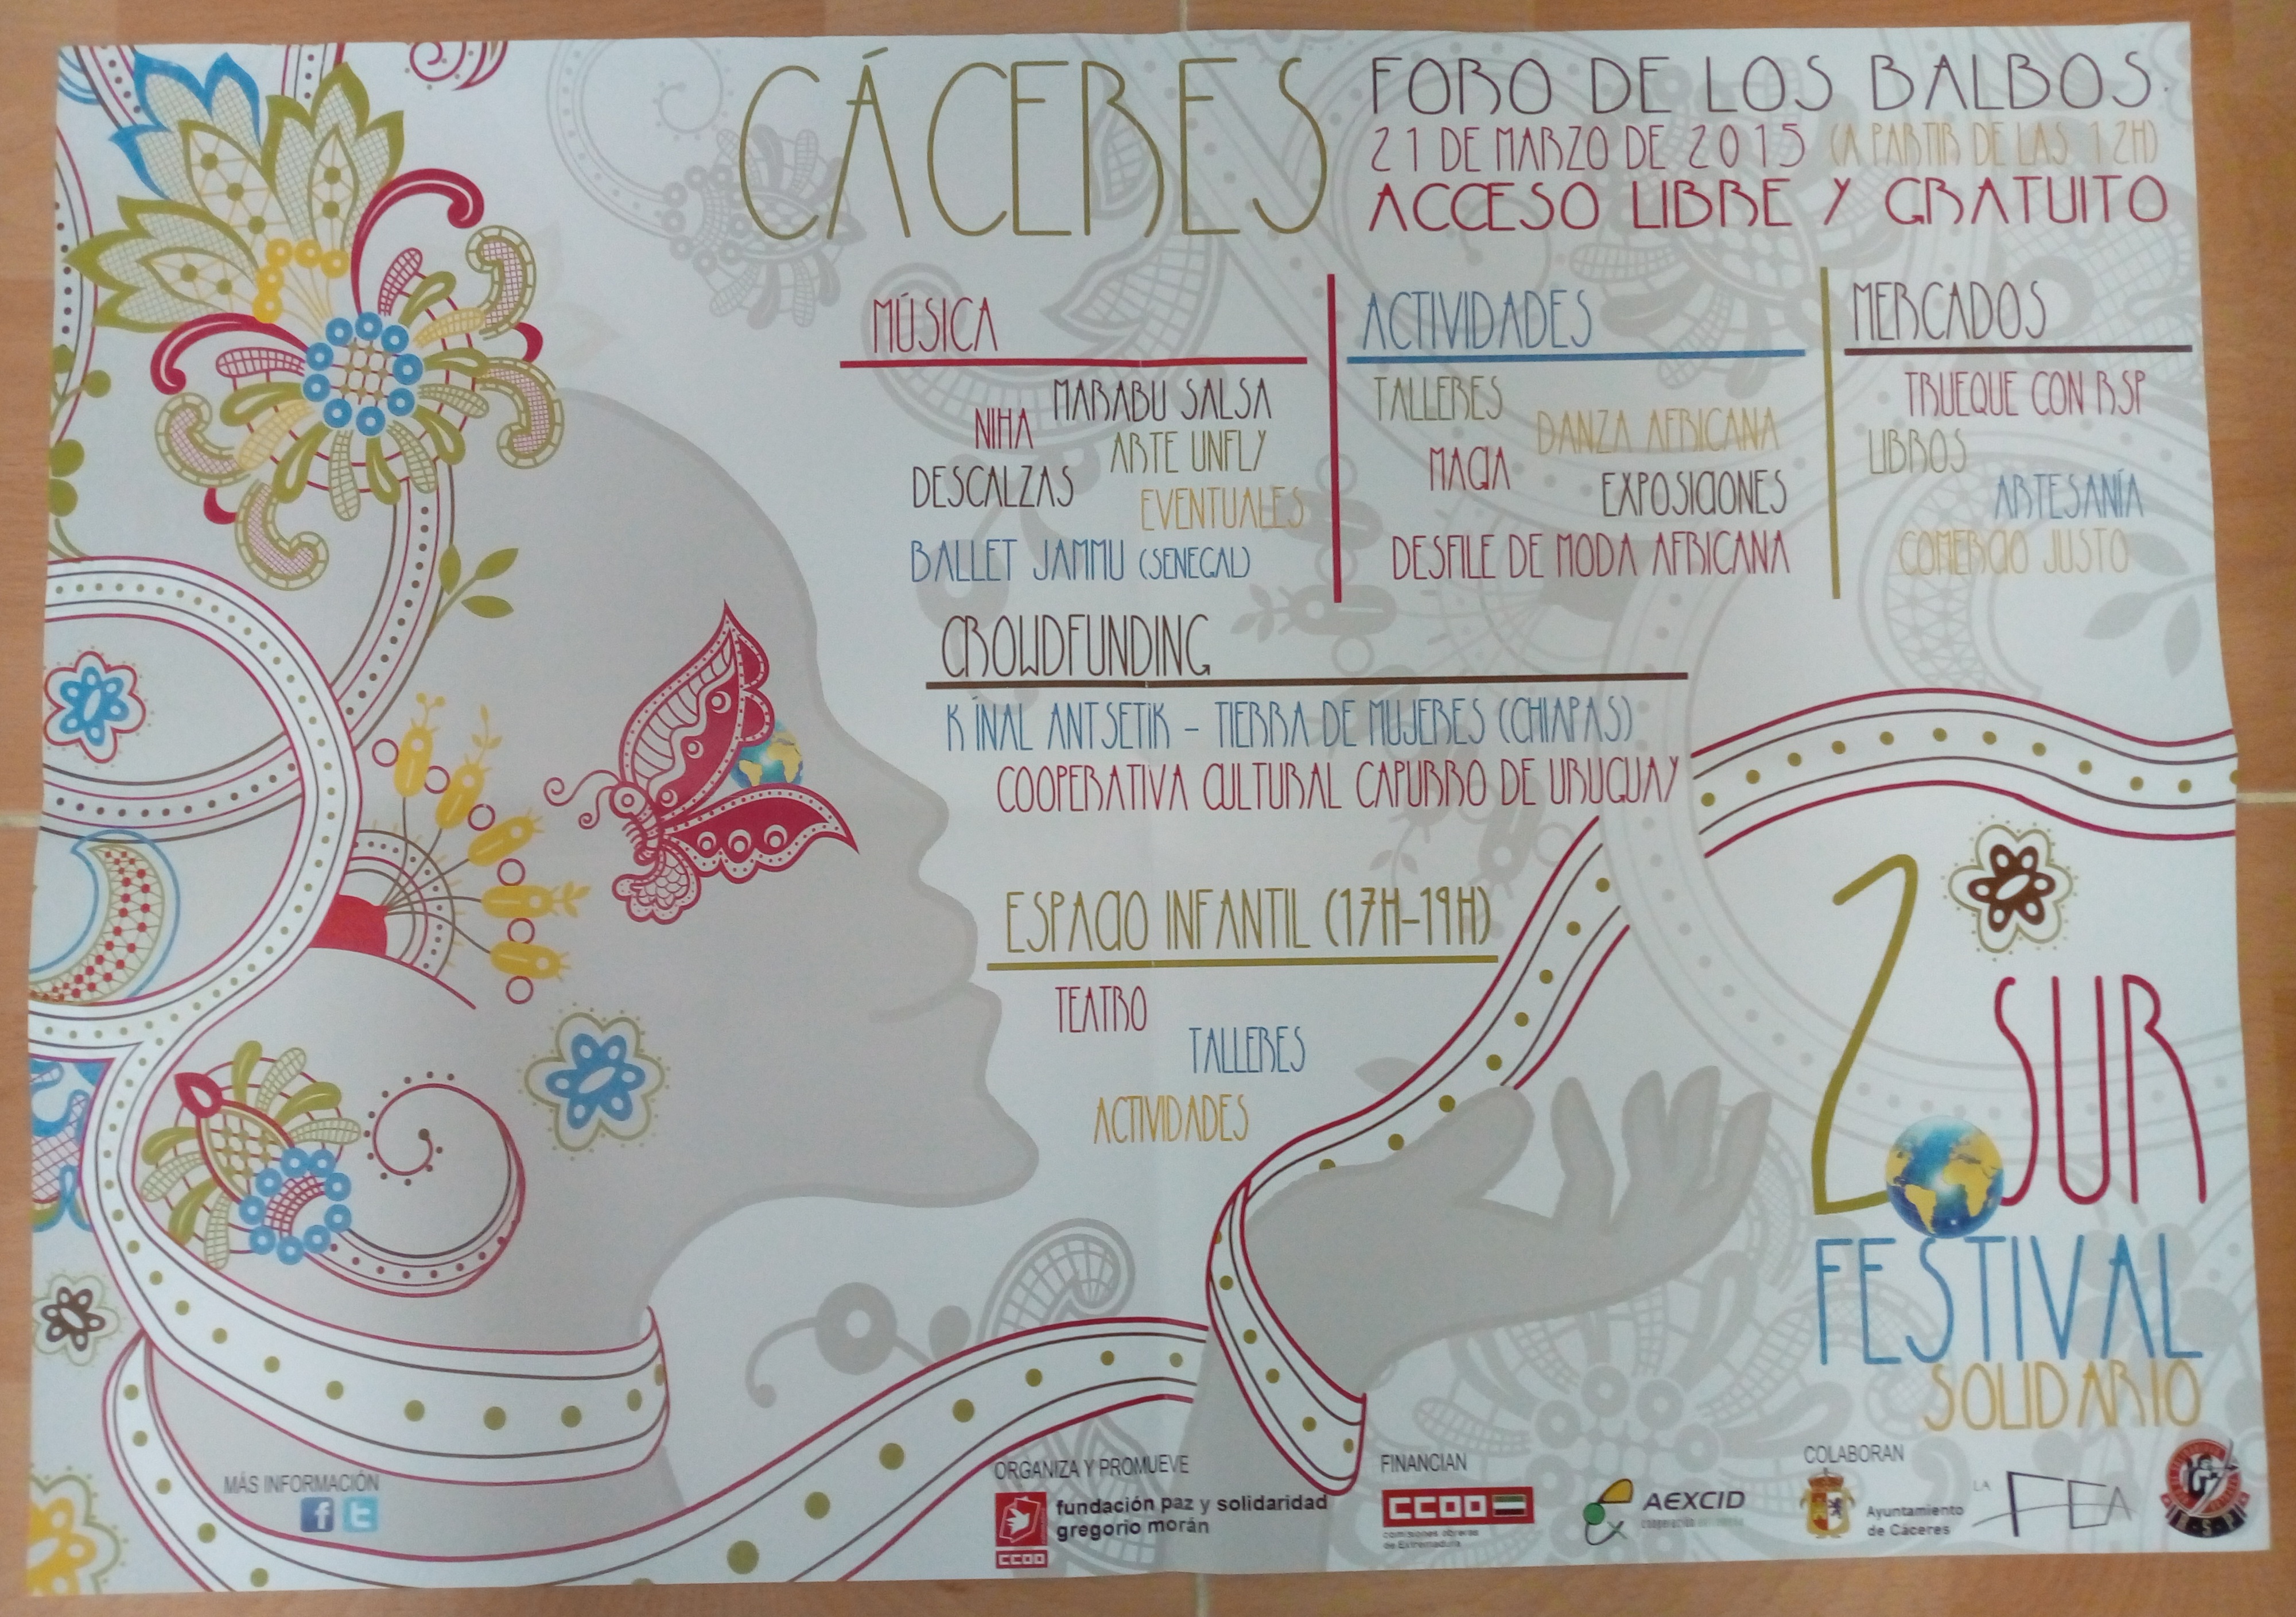 CÁCERES
FORO DE LOS BALBOS.
21 DE MARZO DE 2015 (A PARTIR DE LAS 12H)
ACCESO LIBRE Y GRATUITO
MÚSICA
MARABU SALSA
NIHA
ARTE UNFLY
DESCALZAS
EVENTUALES
BALLET JAMMU (SENEGAL)
ACTIVIDADES
TALLERES
DANZA AFRICANA
MAGIA
EXPOSICIONES
DESFILE DE MODA AFRICANA
MERCADOS
TRUEQUE CON RSP
LIBROS
ARTESANÍA
COMERCIO JUSTO
CROWDFUNDING
K ÍNAL ANTSETIK – TIERRA DE MUJERES (CHIAPAS)
COOPERATIVA CULTURAL CAPURRO DE URUGUAY
ESPACIO INFANTIL (17H–19H)
TEATRO
TALLERES
ACTIVIDADES
2 SUR
FESTIVAL
SOLIDARIO
MÁS INFORMACIÓN
f t
ORGANIZA Y PROMUEVE
fundación paz y solidaridad
gregorio morán
CCOO
FINANCIAN
CCOO
comisiones obreras
de Extremadura
AEXCID
COLABORAN
Ayuntamiento
de Cáceres
LA FEA
R.S.P